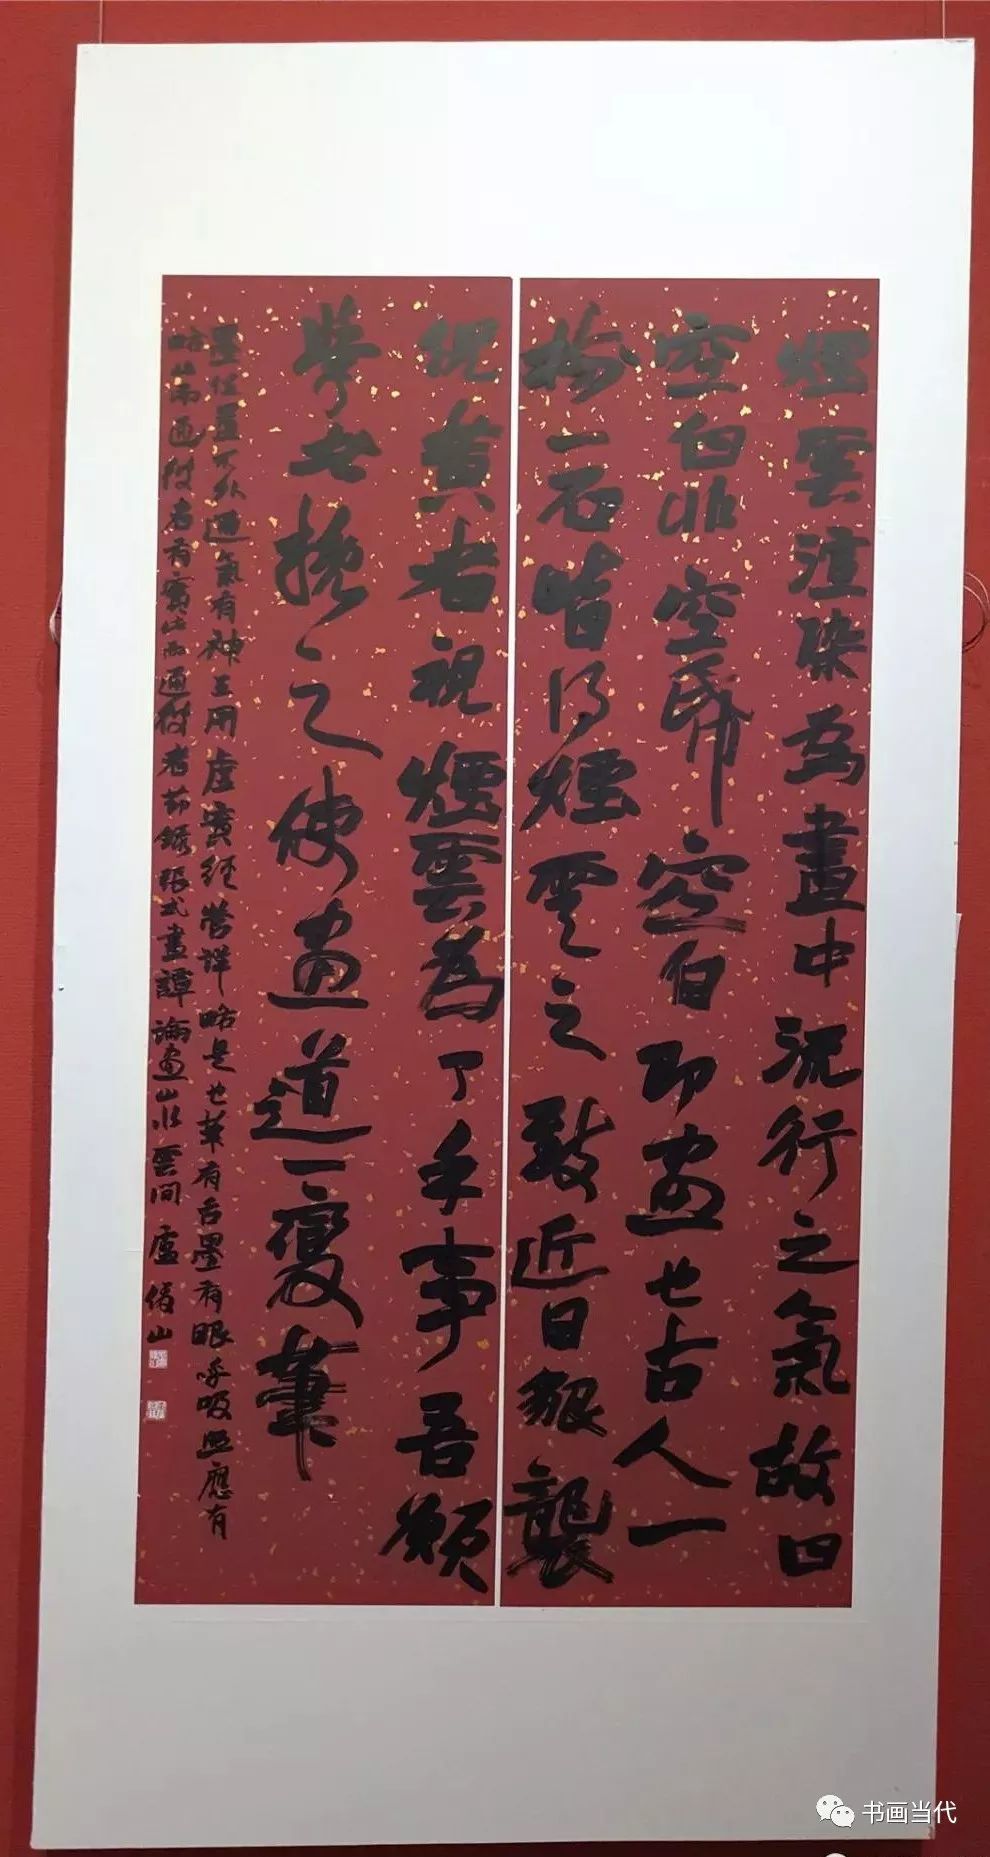 煙雲渲染為畫中流行之氣故曰
空白非空帋空白即画也古人一
樹一石皆得煙雲之致近日貌襲
倪黃者視煙雲為了手事吾願
學者挽之使画道一變筆
墨位置不外通氣有神主用虛實經營詳略是也筆有舌墨有眼呼吸照應有
者有實 者節錄張式畫譚論画山水雲間盧 山
书画当代